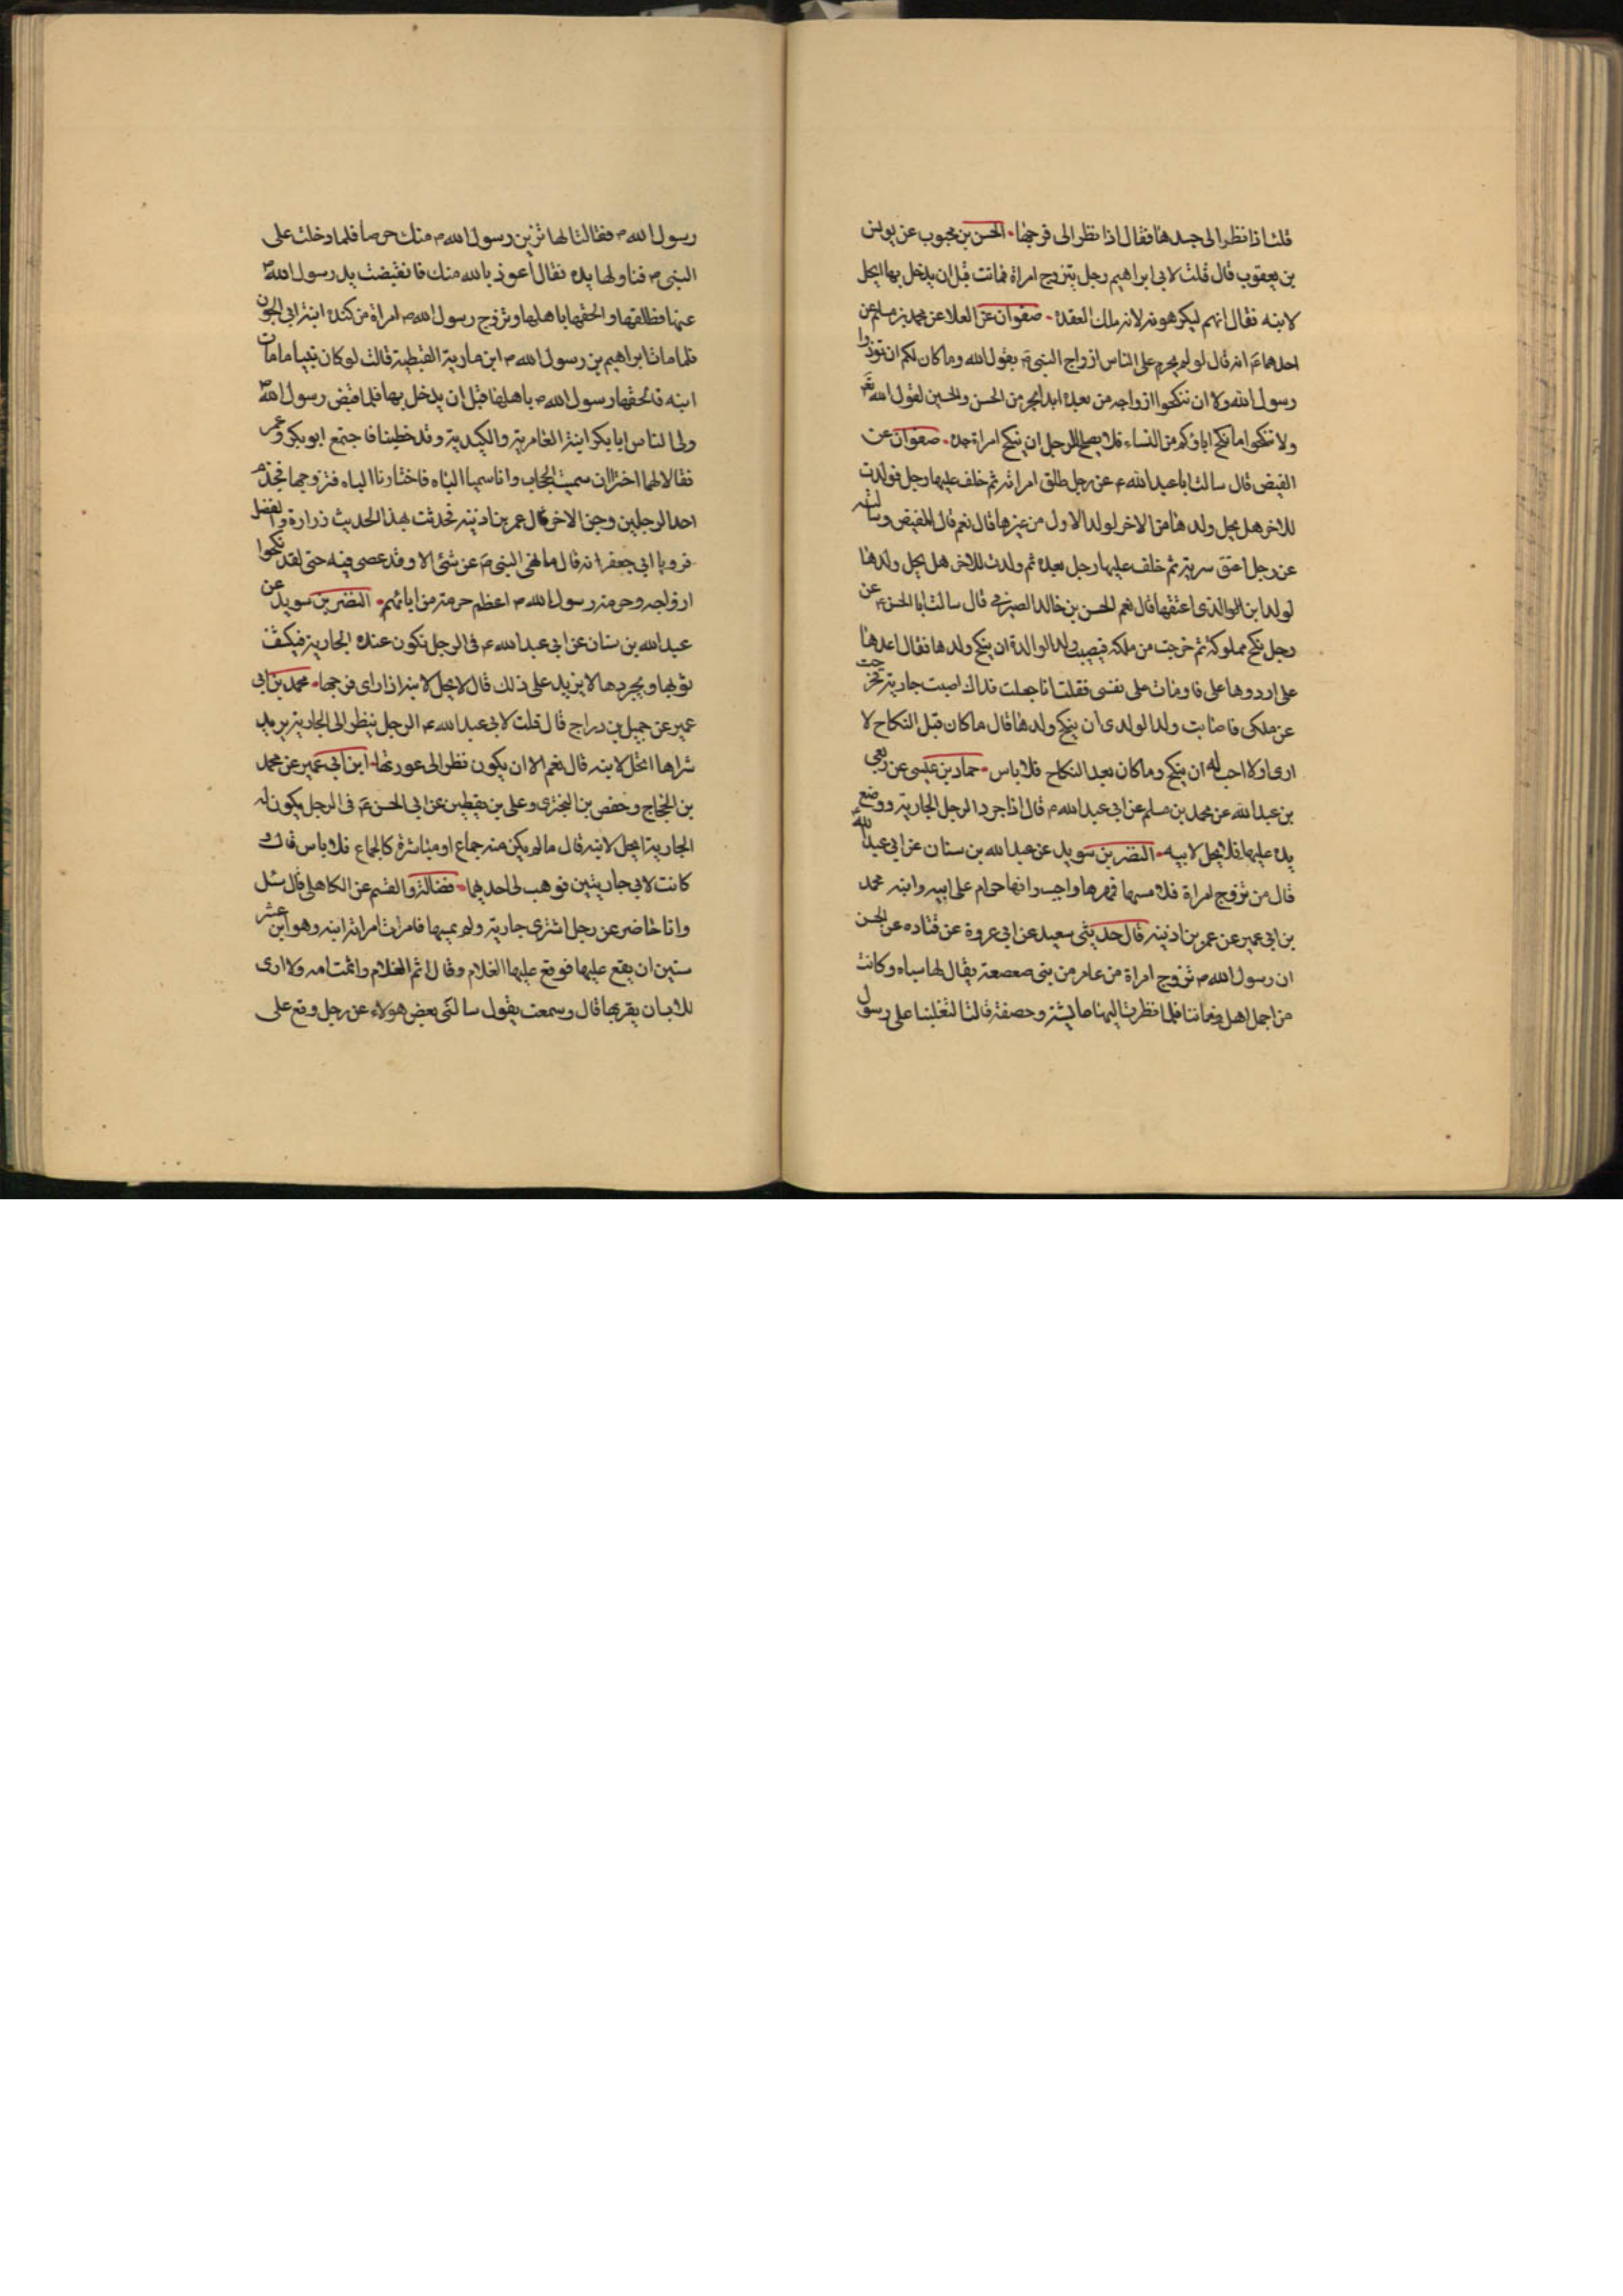 قلت اذا نظر الى جسدها فقال اذا نظر الى فرجها الحسن بن محبوب عن يونس
بن يعقوب قال قلت لابى ابراهيم رجل يتزوج امراة فماتت قبل ان يدخل بها ايحل
لابنه فقال انهم ليكرهونه لانه ملك العقدة صفوان عن العلا عن محمد بن مسلم عن
احدهما ع انه قال لو لم يحرم على الناس ازواج النبى ص بقول الله وما كان لكم ان توذوا
رسول الله ولا ان تنكحوا ازواجه من بعده ابدا لحرم من الحسن والحسين لقول الله تع
ولا تنكحوا ما نكح اباؤكم من النساء فلا يصلح للرجل ان ينكح امراة جده صفوان عن
العيص قال سالت ابا عبد الله ع عن رجل طلق امراته ثم خلف عليها رجل فولدت
للاخر هل يحل ولدها من الاخر لولد الاول من غيرها قال نعم قال العيص وسالته
عن رجل اعتق سريته ثم خلف عليها رجل بعده ثم ولدت للاخر هل يحل ولدها
لولد ابن الوالذى اعتقها قال نعم الحسن بن خالد الصيرفى قال سالت ابا الحسن ع عن
رجل نكح مملوكة ثم خرجت من ملكه فيصيب ولد الوالدة ان ينكح ولدها فقال اعدها
على ارددها على فاومات على نفسى فقلت انا جعلت فداك اصبت جارية فخرجت
عن ملكى فاصابت ولدا لولدى ان ينكح ولدها قال ما كان قبل النكاح لا
ارى اولا احب له ان ينكح وما كان بعد النكاح فلا باس حماد بن عيسى عن ربعى
بن عبد الله عن محمد بن مسلم عن ابى عبد الله ع قال اذا جرد الرجل الجارية ووضع
يده عليها فلا يحل لابيه النضر بن سويد عن عبد الله بن سنان عن ابى عبد الله ع
قال من تزوج امراة فلامسها فمهرها واجب وانها حرام على ابيه وابنه محمد
بن ابى عمير عن عمر بن اذينه قال حدثنى سعيد عن ابى عروة عن قتاده عن الحسن
ان رسول الله ص تزوج امراة من عامر من بنى صعصعة يقال لها سباه وكانت
من اجمل اهل زماننا فلما نظرت اليها عايشة وحصفة قالتا لتغلبنا على رسول
رسول الله ص فقالتا لها تزين رسول الله ص منك حرصا فلما دخلت على
النبى ص فناولها يده فقال اعوذ بالله منك فانقبضت يد رسول الله ص
عنها فطلقها والحقها باهلها وتزوج رسول الله ص امراة من كندة ابنة ابى الجون
فلما مات ابراهيم بن رسول الله ص ابن مارية القبطية قالت لو كان نبيا ما مات
ابنه فالحقها رسول الله ص باهلها قبل ان يدخل بها فلما قبض رسول الله ص
ولى الناس ابا بكر اتته العامرية والكندية وقد خطبنا فاجتمع ابو بكر وعمر
فقالا لهما اخترا ان شيتما الحجاب وان شيتما الباه فاختارتا الباه فتزوجها فجذم
احد الرجلين وجن الاخر قال عمر بن اذينه فحدثت بهذا الحديث زرارة والفضيل
فرويا ابى جعفر انه قال ما نهى النبى ص عن شئ الا وقد عصى فيه حتى لقد نكحوا
ازواجه وحرمة رسول الله ص اعظم حرمة من ابائهم النضر بن سويد عن
عبد الله بن سنان عن ابى عبد الله ع فى الرجل تكون عنده الجارية فيكشف
ثوبها ويجردها لا يزيد على ذلك قال لا يحل لابنه اذا راى فرجها محمد بن ابى
عمير عن جميل بن دراج قال قلت لابى عبد الله ع الرجل ينظر الى الجارية يريد
شراها اتحل لابنه قال نعم الا ان يكون نظر الى عورتها ابن ابى عمير عن محمد
بن الحجاج وحفص بن البخترى وعلى بن يقطين عن ابى الحسن ع فى الرجل يكون له
الجارية ايحل لابنه قال ما لم يكن منه جماع او مباشرة كالجماع فلا باس قال و
كانت لابى جاريتين فوهب لى احديهما فضالة والقسم عن الكاهلى قال سئل
وانا حاضر عن رجل اشترى جارية ولم يمسها فامرات امراته ابنه وهو ابن عشر
سنين ان يقع عليها فوقع عليها الغلام وقال اثم الغلام واثمت امه ولا ارى
للاب ان يقربها قال وسمعت يقول سالنى بعض هولاء عن رجل وقع على